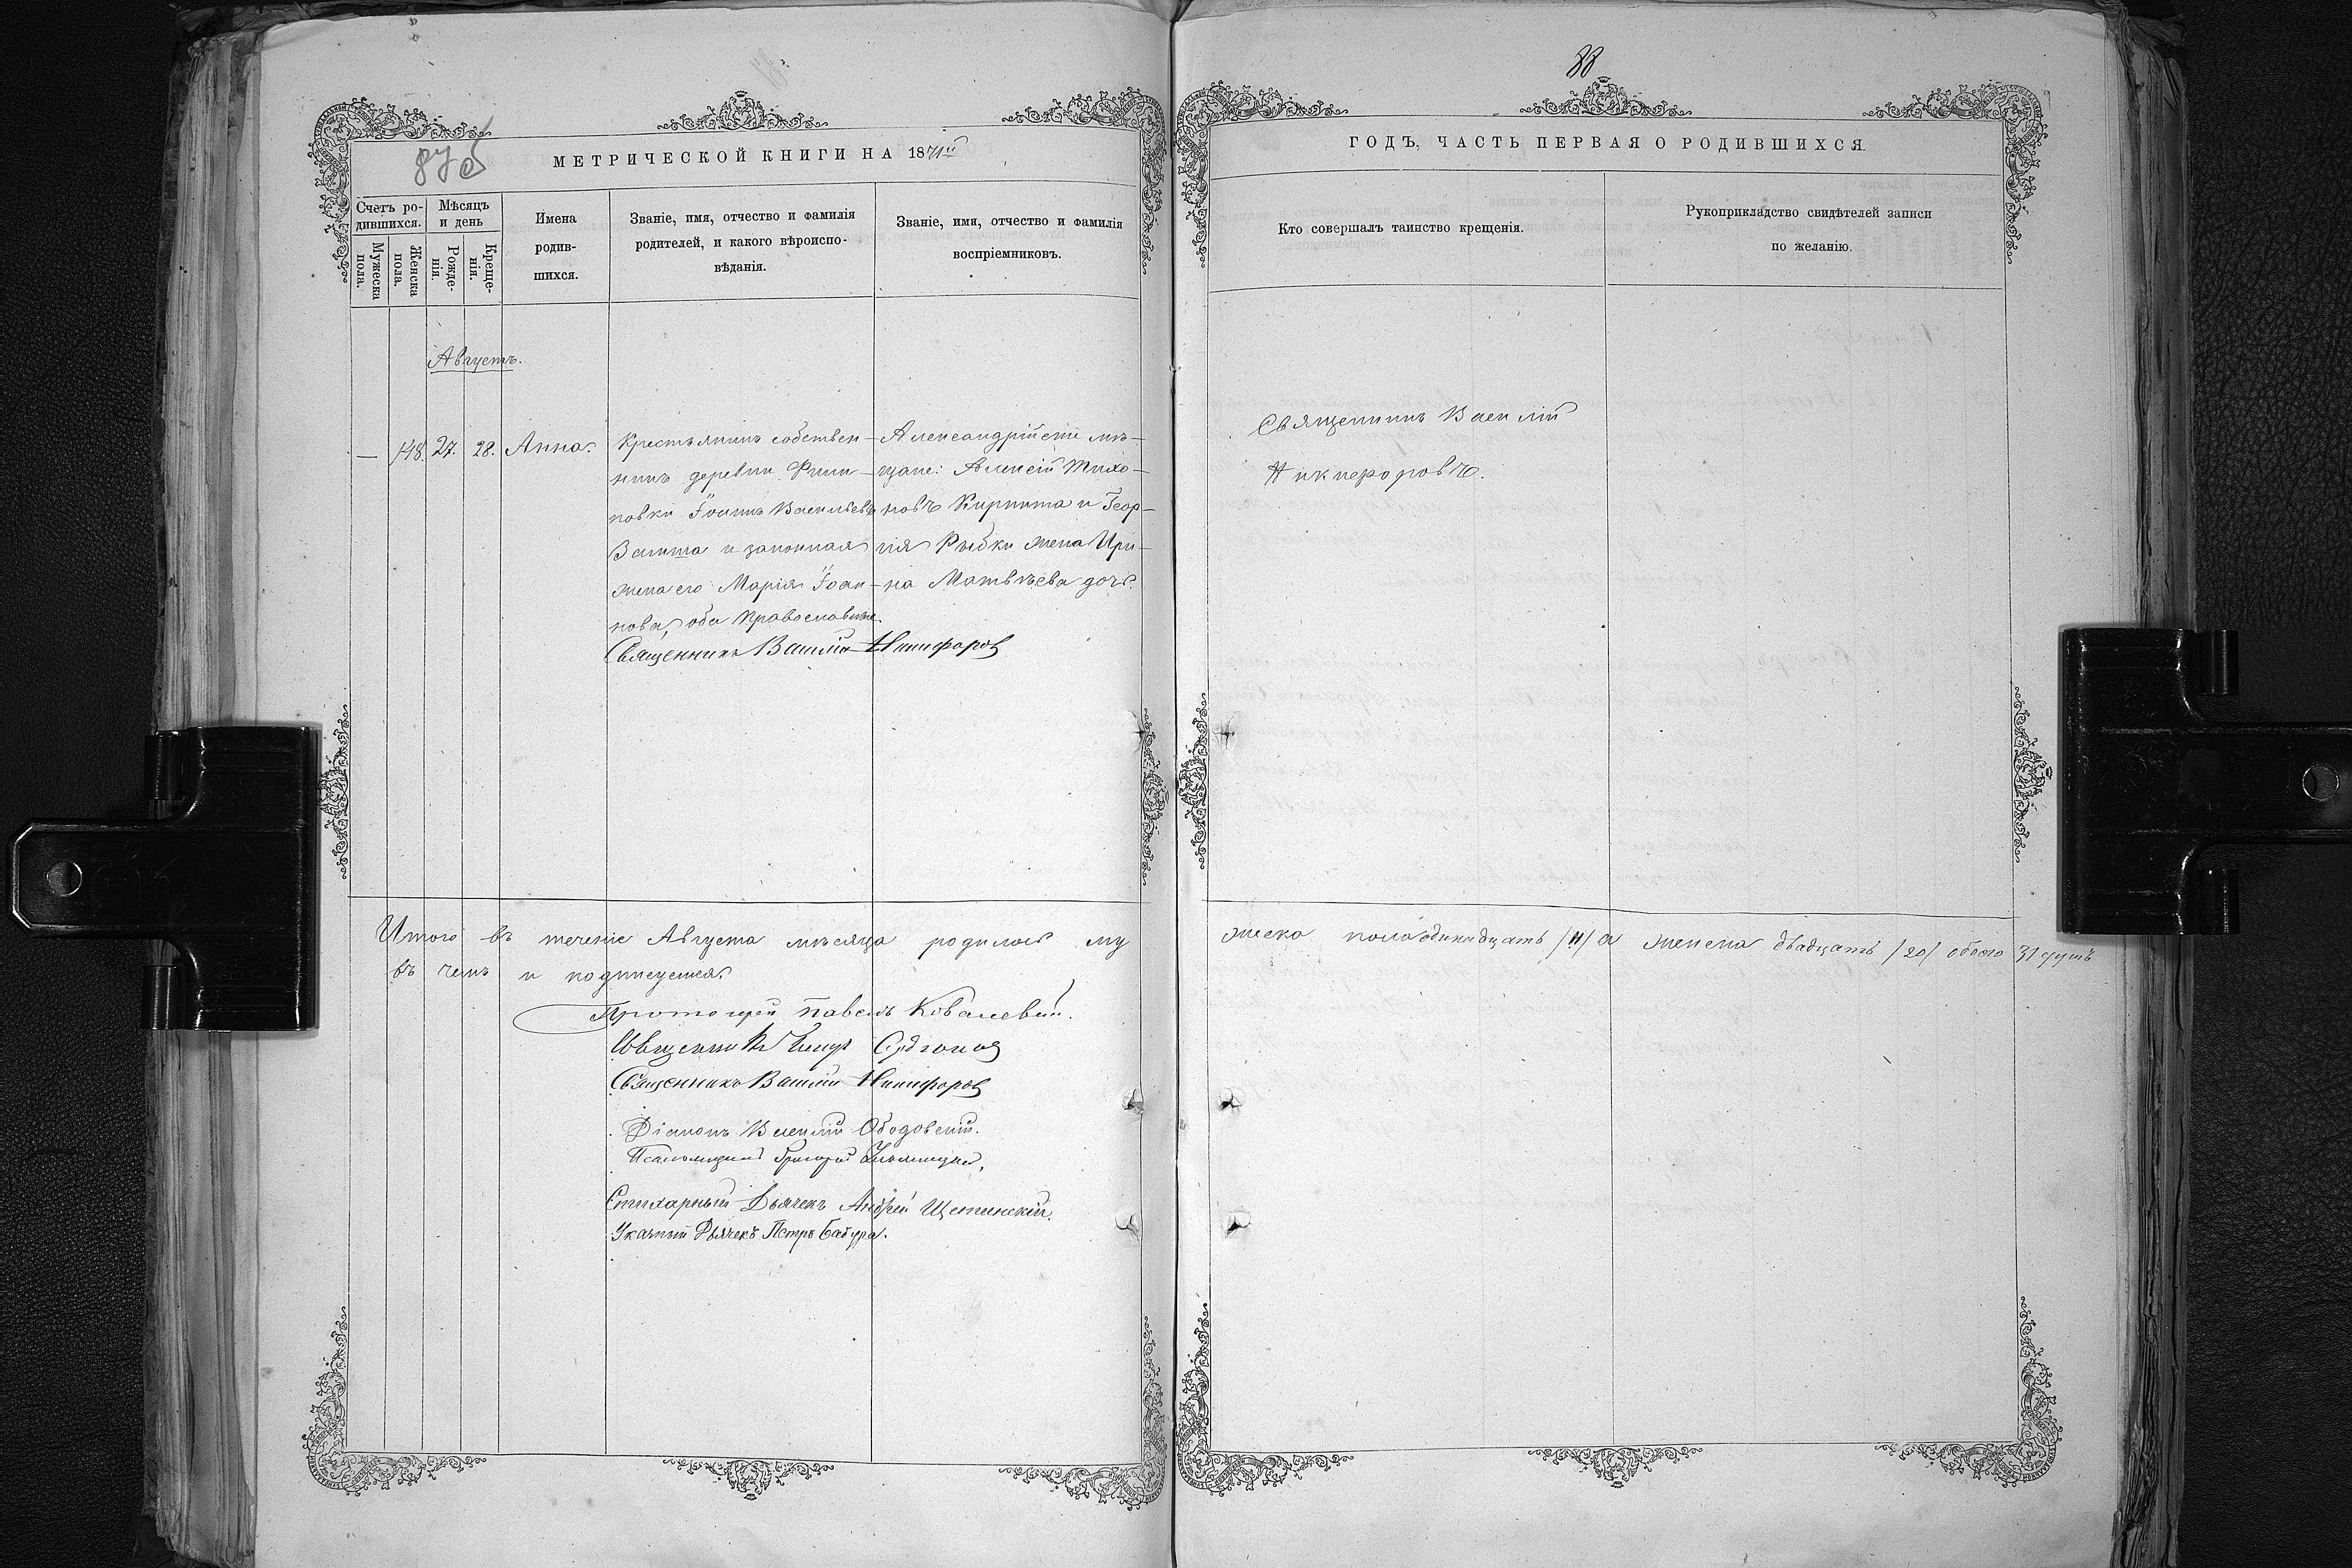 87об
88
МЕТРИЧЕСКОЙ КНИГИ НА 1871й
ГОДЪ, ЧАСТЬ ПЕРВАЯ О РОДИВШИХСЯ.
Счетъ ро-
дившихся.
Мужеска
пола.
Женска
пола.
Мѣсяцъ
и день
Рожде-
нія.
Креще-
нія.
Имена
родив-
шихся.
Званіе, имя, отчество и фамилія
родителей, и какого вѣроиспо-
вѣданія.
Званіе, имя, отчество и фамилія
воспріемниковъ.
Кто совершалъ таинство крещенія.
Рукоприкладство свидѣтелей записи
по желанію.
Августъ.
— 148. 27. 28. Анна.
Крестьянинъ собствен-
никъ деревни
повки Іоаннъ Васильевъ
и законная
жена его Марія Іоан-
нова, оба Православные.
Священникъ Василій Никифоров
Александрійскіе мѣ-
щане: Алексій Тихо-
новъ Кирпита и Геор-
гія Рыбки жена Ири-
на Матвѣева дочь.
Священникъ Василій
Никифоровъ.
Итого въ теченіе Августа мѣсяца родилось му
жеска пола одинадцать /11/ а женска двадцать /20/ обоего 31 душъ
въ чемъ и подписуемся.
Протоіерей Павелъ Ковалевскій.
Священникъ
Священникъ Василій Никифоров
Діаконъ Василій Ободовскій.
Псаломщикъ Григорій
Стихарный Дьячекъ Андрей Щетинскій.
Указный Дьячекъ Петръ Бабура.